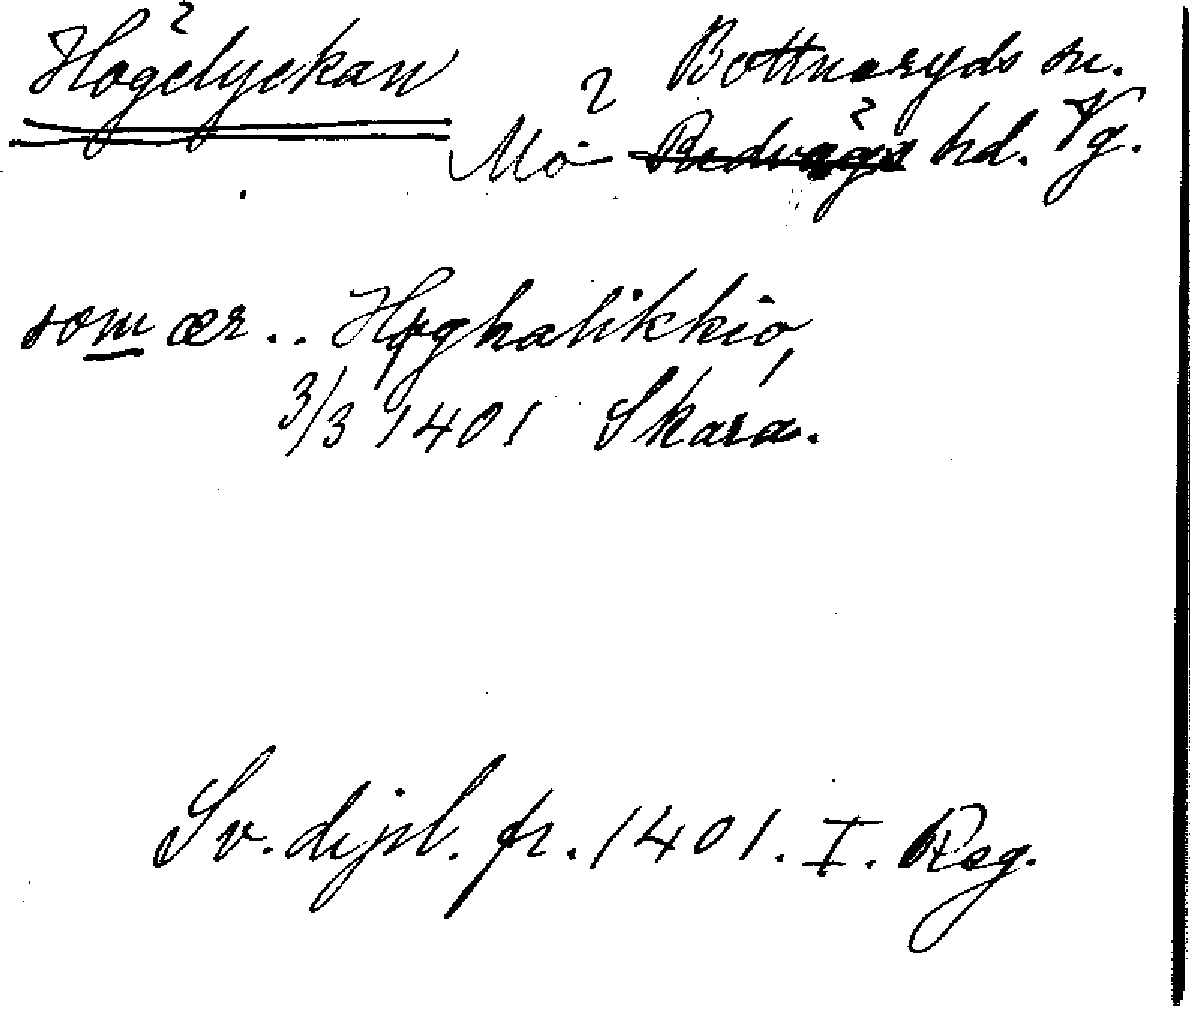 Högelyckan ? Bottnaryds sn.
Mo Redvägs hd. Vg.
som ær .. Høghalikkio,
3/3 1401 Skara.
Sv. dipl. fr. 1401. I. Reg.